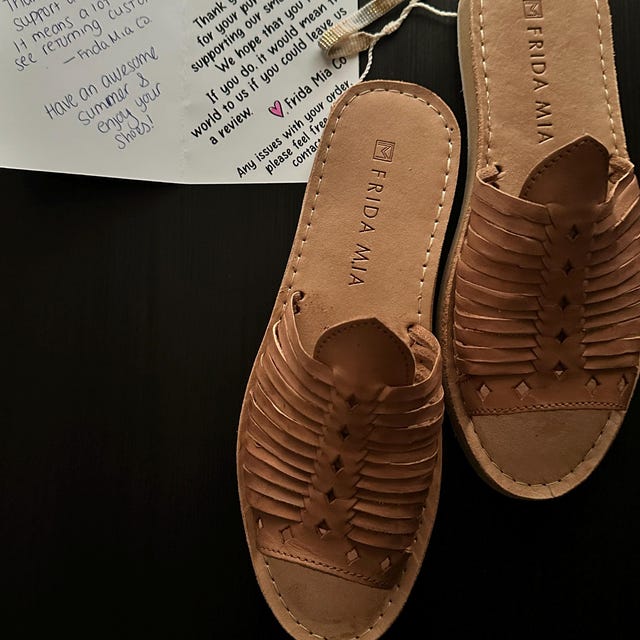 support
It means a lot
see returning custom
— Frida Mia Co
Have an awesome
summer &
enjoy your
shoes!
Thank
for your pu
supporting our sm
We hope that you
If you do, it would mean
world to us if you could leave us
a review. Frida Mia Co
Any issues with your order
please feel free
contac
FRIDA MIA
FRIDA MIA